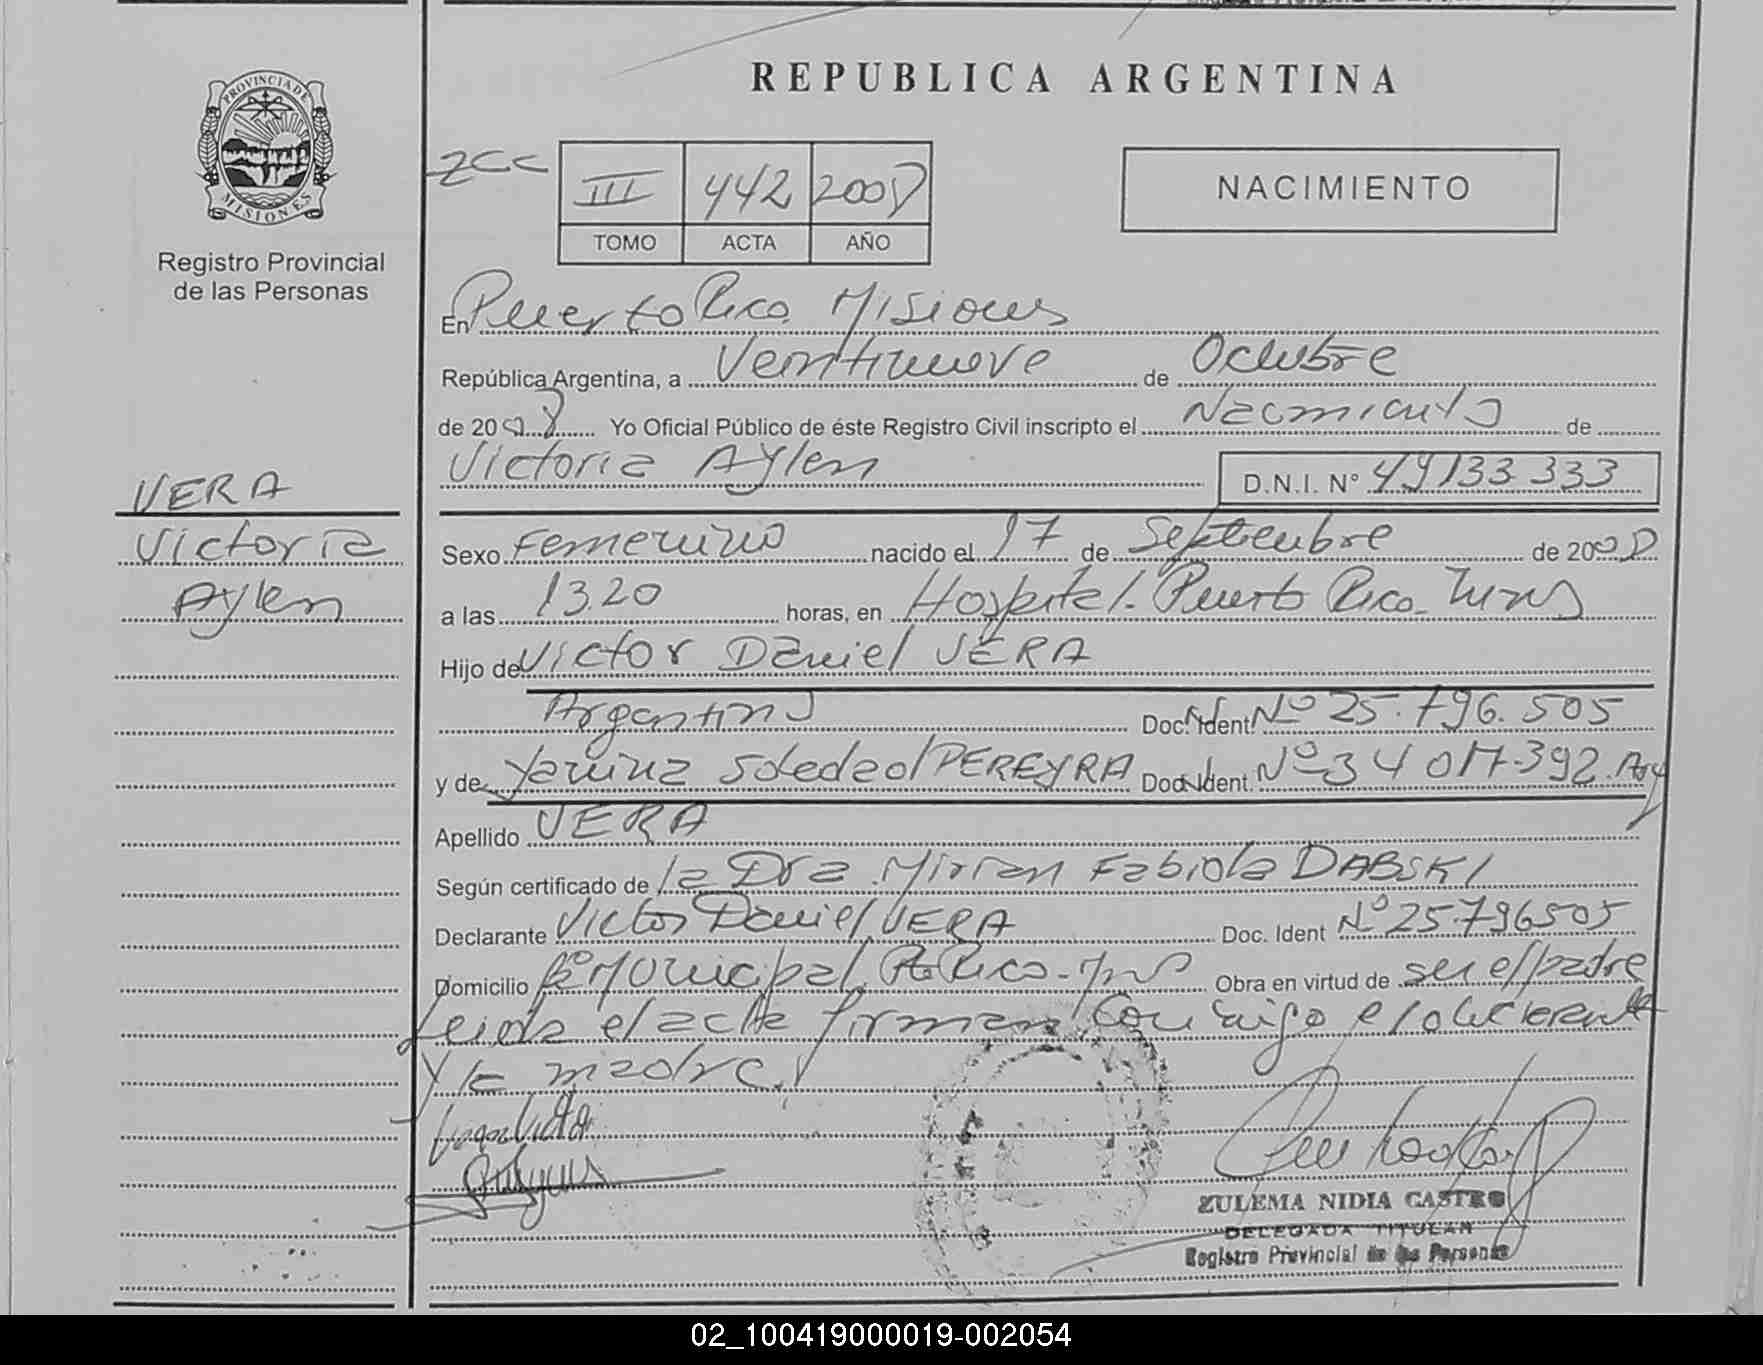 REPUBLICA ARGENTINA
PROVINCIA DE
MISIONES
Registro Provincial
de las Personas
III 442 2008
TOMO ACTA AÑO
NACIMIENTO
En Puerto Rico Misiones
República Argentina, a Veintinueve de Octubre
de 2008 Yo Oficial Público de éste Registro Civil inscripto el Nacimiento de
Victoria Aylen D.N.I. N° 49133 333
VERA
Victoria
Aylen
Sexo Femenino nacido el 17 de Septiembre de 2008
a las 13.20 horas, en Hospital. Puerto Rico
Hijo de Victor Daniel VERA
Argentino Doc. Ident. Nº 25.796.505
y de Yanina Soledad PEREYRA Doc. Ident. Nº 34 017.392. Arg
Apellido VERA
Según certificado de la Dra. Mirian Fabiola DABSKI
Declarante Victor Daniel VERA Doc. Ident Nº 25.796505
Domicilio Bº Municipal. Pto Rico - Mnes Obra en virtud de ser el padre
Leida el acta firman conmigo el declarante
y la madre.
ZULEMA NIDIA CASTRO
DELEGADA TITULAR
Registro Provincial de las Personas
02_100419000019-002054